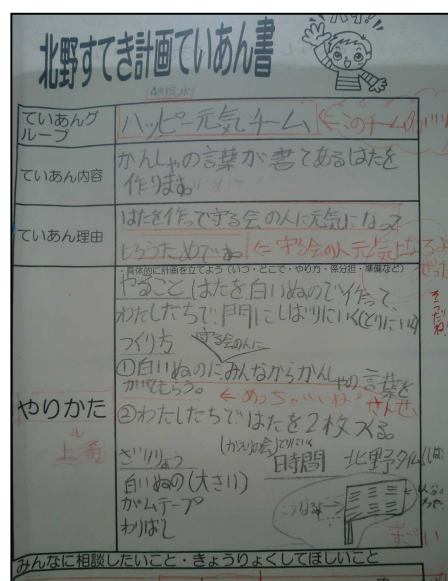 北野すてき計画ていあん書
ていあんグループ
ハッピー元気チーム
←このチーム
ていあん内容
かんしゃの言葉が書てあるはたを
作ります。
ていあん理由
はたを作って守る会の人に元気になって
もらうためです。
←守る会の人元気に
・具体的に計画を立てよう（いつ・どこで・やり方・係分担・準備など）
やること はたを白いぬので作って、
わたしたちで、門にしばりにいく(とりにいく)
つくり方
守る会の人に
①白いぬのに、みんなからかんしゃの言葉を
かいてもらう。
←めっちゃいいね。さんせい
やりかた
②わたしたちではたを2枚つくる。
ざいりょう
時間 北野タイム
白いぬの(大きい)
ガムテープ
わりばし
すごい
みんなに相談したいこと・きょうりょくしてほしいこと